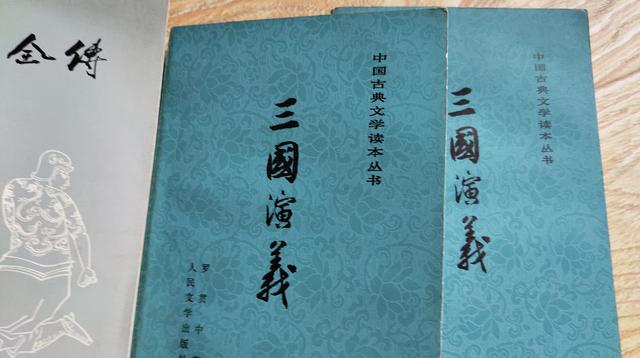 全傳
中国古典文学读本丛书
三國演義
罗贯中
人民文学出版
中国古典文学读本丛书
三國演義